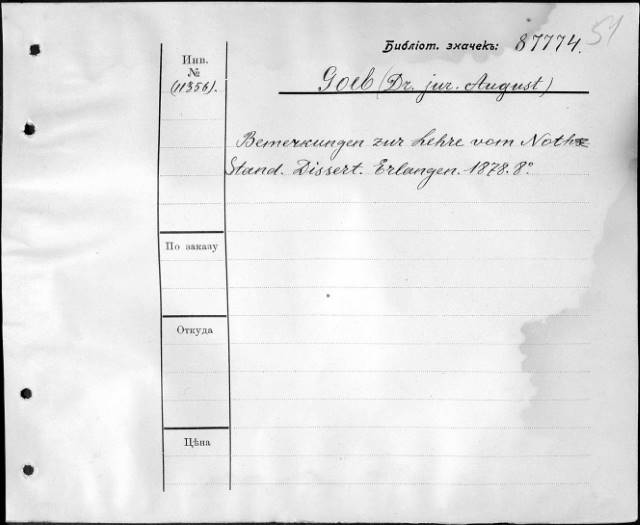 Библіот. значекъ: 87774. 51
Инв.
№
(11356).
Goeb (Dr. jur. August)
Bemerkungen zur Lehre vom Noth=
Stand. Dissert. Erlangen. 1878. 8°
По заказу
Откуда
Цѣна